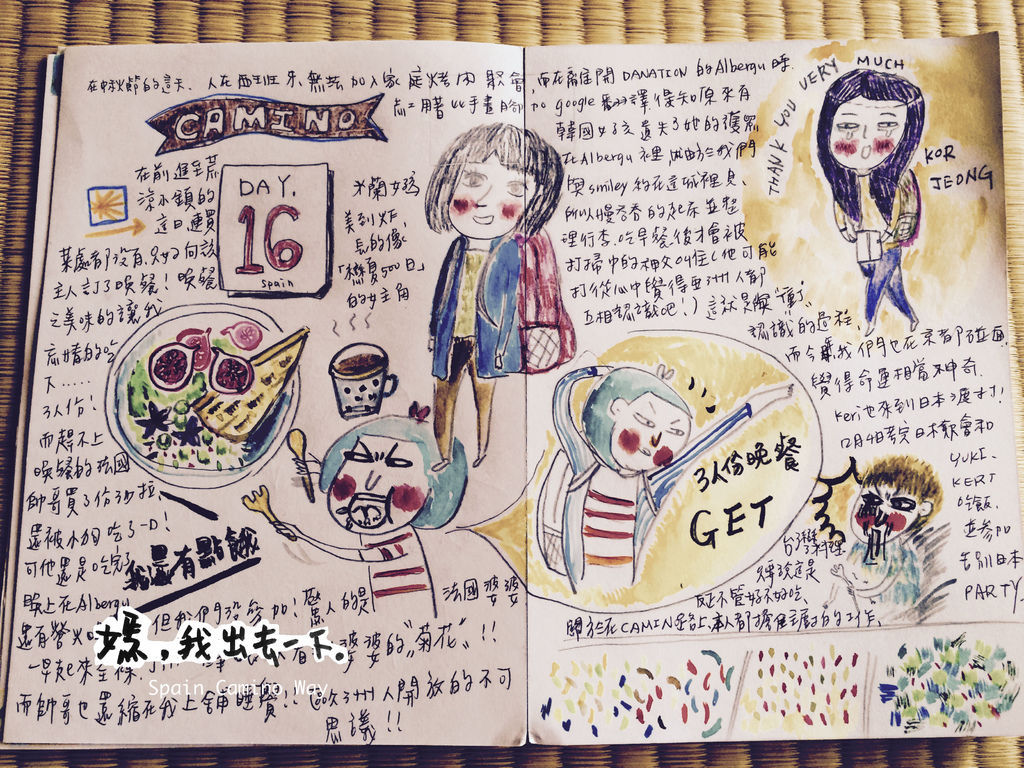 在中秋節的這天、人在西班牙,無法加入家庭烤肉聚會
CAMINO
在前進至荒
涼小鎮的
這日,連買
菜處都沒有,只好向該
主人訂了晚餐!晚餐
之美味的讓我
忘情的吃
下.....
3人份!
而趕不上
晚餐的法國
帥哥買了份沙拉
還被小狗吃了一口!
可他還是吃完了
我還有點餓
DAY.
16
Spain
米蘭女孩
美到炸
長的像
「戀夏500日」
的女主角
晚上在Albergu
還有營火
但我們沒參加!驚人的是
法國婆婆
婆婆的"菊花"!!
一早起來全裸
而帥哥也還縮在我上舖睡覺!!歐洲人開放的不可
思議!!
媽,我出去一下.
Spain Camino Way
而在離開DANATION的Albergu時.
google翻譯得知原來有
韓國女孩遺失了她的護照
在Albergu裡
與smiley約在這城裡見、
所以慢吞吞的起床並整
理行李.吃早餐後才會被
打掃中的神父叫住(他可能
打從心中覺得亞洲人都
互相認識吧!)這就是
認識的過程、
而今年我們也在京都碰面
覺得命運相當不神奇.
Keri也來到日本渡
12月4號
日本
會和
YUKI、
KERI
吃飯,
並參加
告別日本
PARTY
THANK YOU VERY MUCH
KOR
JEONG
3人份晚餐
GET
台灣
總說這是
反正不管好不好吃、
關於在CAMINO路上,本人都擔任主廚的工作、